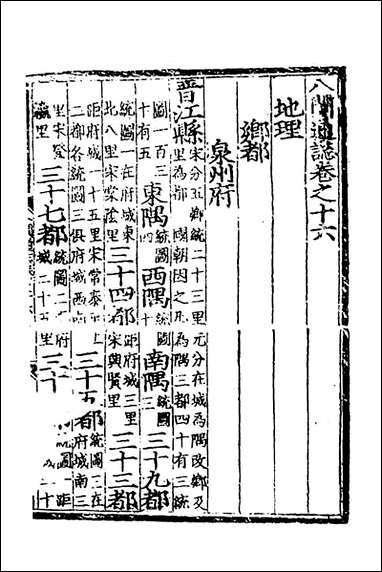 八閩通誌卷之十六
地理
鄉都
泉州府
晉江縣宋分五鄉統二十三里元分在城為隅改鄉及里為都 國朝因之凡為隅三都四十有三統
圖一百三十有五東隅統圖四西隅統圖十南隅統圖三三十九都
統圖一在府城東北八里宋棠陰里三十四都距府城三里宋興賢里三十三都
距府城一十五里宋常泰二都各統圖三俱府城西南三十五都統圖二在府城南三
里宋登瀛里三十七都統圖二城二十五府里三十距十